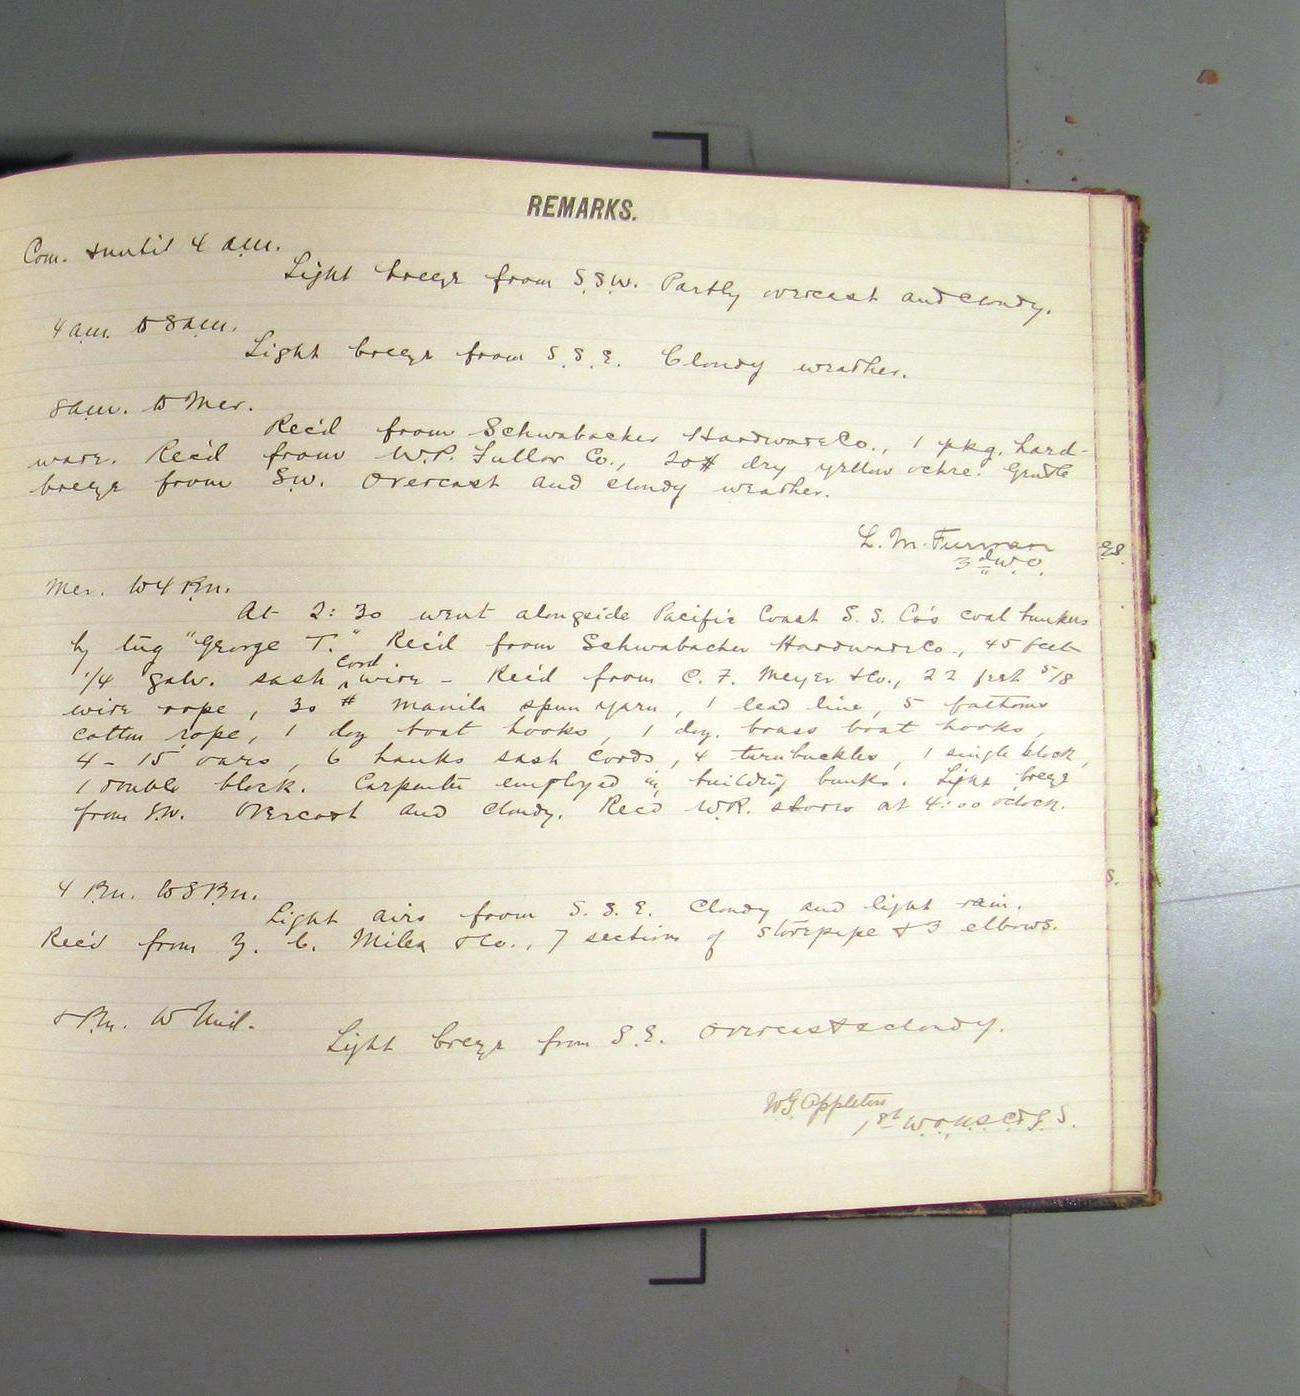 REMARKS.
Com. & until 4 a.m.
Light breeze from S.S.W. Partly overcast and cloudy.
4 a.m. to 8 a.m.
Light breeze from S.S.E. Cloudy weather.
8 a.m. to Mer.
Rec'd from Schwabacher Hardware Co., 1 pkg. hard-
ware. Rec'd from W.P. Fuller Co., 20# dry yellow ochre. Gentle
breeze from S.W. Overcast and cloudy weather.
L. M. Furman
3d W.O.
Mer. to 4 P.m.
At 2:30 went alongside Pacific Coast S. S. Co's coal bunkers
by tug "George T." Rec'd from Schwabacher Hardware Co., 45 feet
1/4 galv. sash cord wire - Rec'd from C. F. Meyer & Co., 22 feet 5/8
wire rope, 30 # manila spun yarn, 1 lead line, 5 fathoms
cotton rope, 1 doz boat hooks, 1 doz. brass boat hooks,
4 - 15 oars, 6 hanks sash cords, 4 turnbuckles, 1 single block,
1 double block. Carpenter employed in building bunks. Light breeze
from S.W. Overcast and cloudy. Rec'd W.R. stores at 4:00 oclock.
4 P.m. to 8 P.m.
Light airs from S.S.E. Cloudy and light rain.
Rec'd from Z. C. Miles & Co., 7 sections of stovepipe & 3 elbows.
8 P.m. to Mid.
Light breeze from S.E. Overcast & cloudy.
W G Appleton
1st W.O. U.S.C. & G. S.